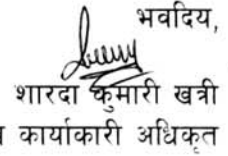 भवदिय,
शारदा कुमारी खत्री
कार्याकारी अधिकृत